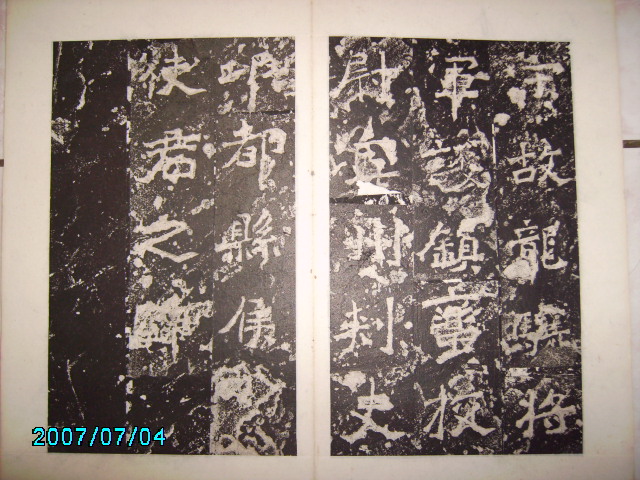 宋故龍驤將
軍護鎮蠻校
尉寧州刺史
邛都縣侯爨
使君之碑
2007/07/04